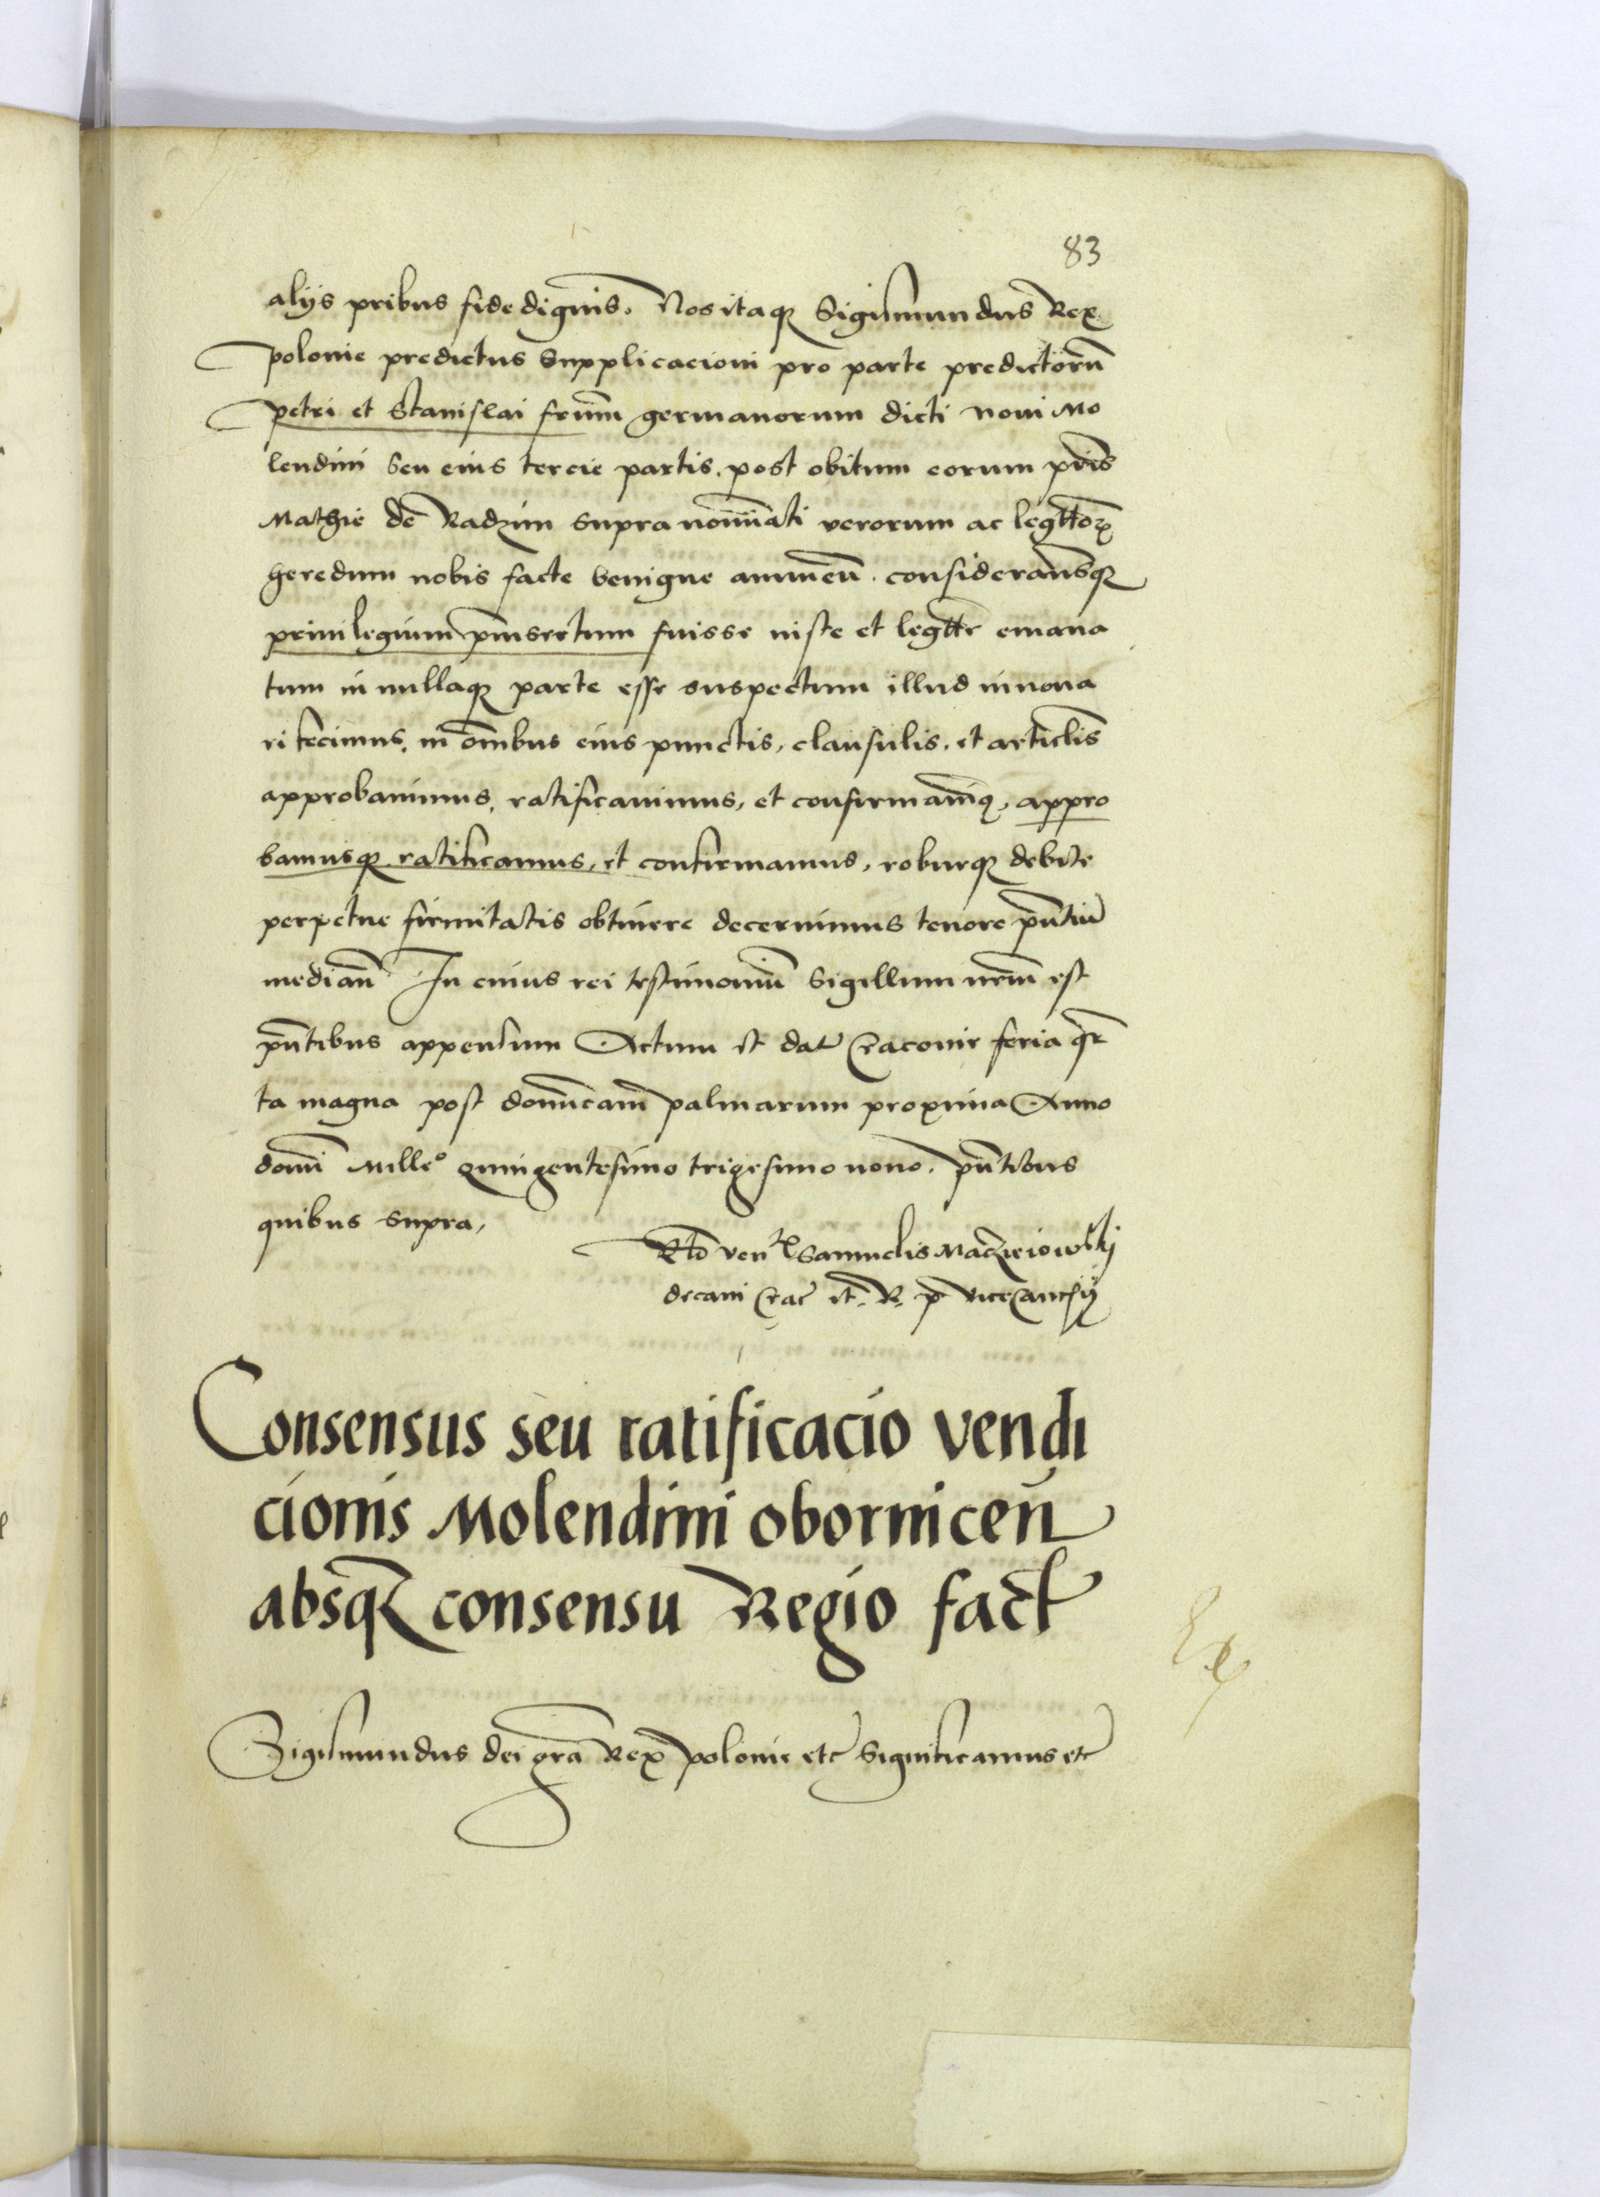 83
alijs pribus fidedignis. Nos itaq Sigismundus Rex
polonie predictus Supplicacioni pro parte predictorū
petri et Stanislai frum̄ germanorum dicti noui Mo
lendini seu eius tercie partis. post obitum eorum pr̄is
Mathie de Radzim supra noīati verorum ac legttor
heredum nobis facte benigne annueñ. considerañsq
priuilegium p̄insertum fuisse iuste et legttē emana
tum in nullaq parte esse suspectum illud innoua
ri fecimus, in oībus eius punctis, clausulis, et articlis
approbauimus, ratificauimus, et confirmauimq, appro
bamusq ratificamus, et confirmamus, roburq debite
perpetue firmitatis obtinere decernimus tenore p̄ntiū
mediañ In cuius rei testimoniū Sigillum nr̄m est
p̄ntibus appensum Actum et dat Cracouie feria qr
ta magna post dominicam palmarum proxima Anno
domī Milleo quingentesimo trigesimo nono. p̄ntibus
quibus supra,
Rtō ven Samuelis Maczieiowskij
decani Crac et. R. p. viceCancrij
Consensus seu ratificacio vendi
cionis Molendini oborniceñ
absq consensu Regio fact
Sigismundus dei gr̄a Rex polonie etc Significamus etc
Ex